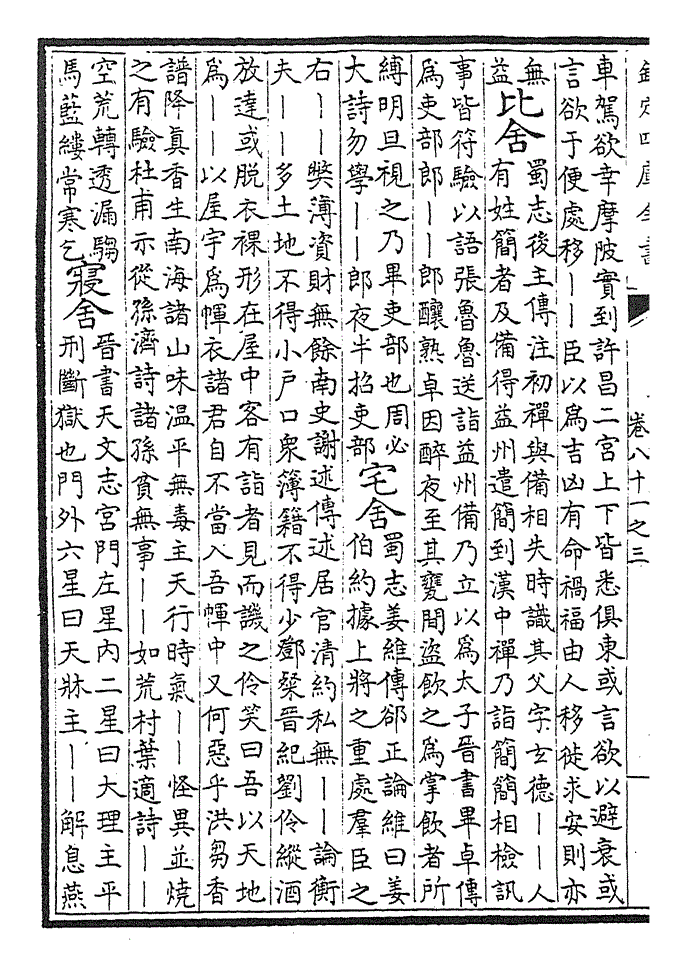 欽定四庫全書 卷八十一之三
車駕欲幸摩陂實到許昌二宮上下皆悉俱東或言欲以避衰或
言欲于便處移丨丨臣以為吉凶有命禍福由人移徙求安則亦
無
益
比舍
蜀志後主傳注初禪與備相失時識其父字玄德丨丨人
有姓簡者及備得益州遣簡到漢中禪乃詣簡簡相檢訊
事皆符驗以語張魯魯送詣益州備乃立以為太子晉書畢卓傳
為吏部郎丨丨郎釀熟卓因醉夜至其甕間盜飲之為掌飲者所
縛明旦視之乃畢吏部也周必
大詩勿學丨丨郎夜半招吏部
宅舍
蜀志姜維傳郤正論維曰姜
伯約據上將之重處羣臣之
右丨丨獘薄資財無餘南史謝述傳述居官清約私無丨丨論衡
夫丨丨多土地不得小戶口衆簿籍不得少鄧粲晉紀劉伶縱酒
放達或脫衣裸形在屋中客有詣者見而譏之伶笑曰吾以天地
為丨丨以屋宇為幝衣諸君自不當入吾幝中又何惡乎洪芻香
譜降真香生南海諸山味温平無毒主天行時氣丨丨怪異並燒
之有驗杜甫示從孫濟詩諸孫貧無事丨丨如荒村葉適詩丨丨
空荒轉透漏騶
馬藍縷常寒乞
寢舍
晉書天文志宮門左星內二星曰大理主平
刑斷獄也門外六星曰天牀主丨丨解息燕